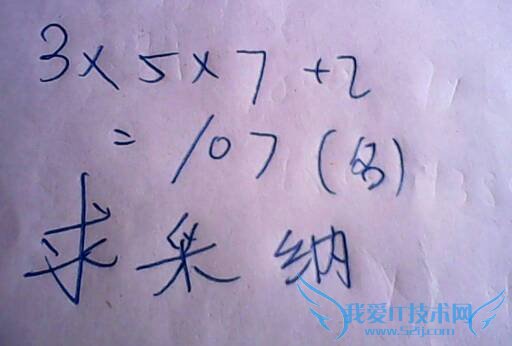 3×5×7+2
=107(名)
求采纳
我爱IT技术网
www.52ij.com